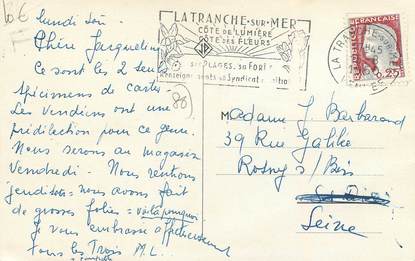 lundi soir
Chère Jacqueline
Ce sont les 2 seuls
spécimens de cartes.
Les Vendéens ont une
prédilection pour ce genre.
Nous serons au magasin
Vendredi. Nous rentrons
jeudi soir = nous avons fait
de grosses folies = voilà pourquoi
Je vous embrasse affectueusement
tous les Trois M.L.
LA TRANCHE-SUR-MER
CÔTE DE LUMIÈRE
CÔTE DES FLEURS
SES PLAGES. SA FORÊT
LA TRANCHE
FRANÇAISE
0,25
Madame J. Barbarand
39 Rue Galilée
Rosny s/ Bois
Seine